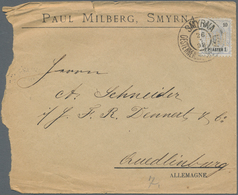 PAUL MILBERG, SMYRNA.
SMYRNA
26
10
PIASTER 2
Herrn
A. Schneider
i/F. F. R. Dennert & Co.
Quedlinburg
ALLEMAGNE.